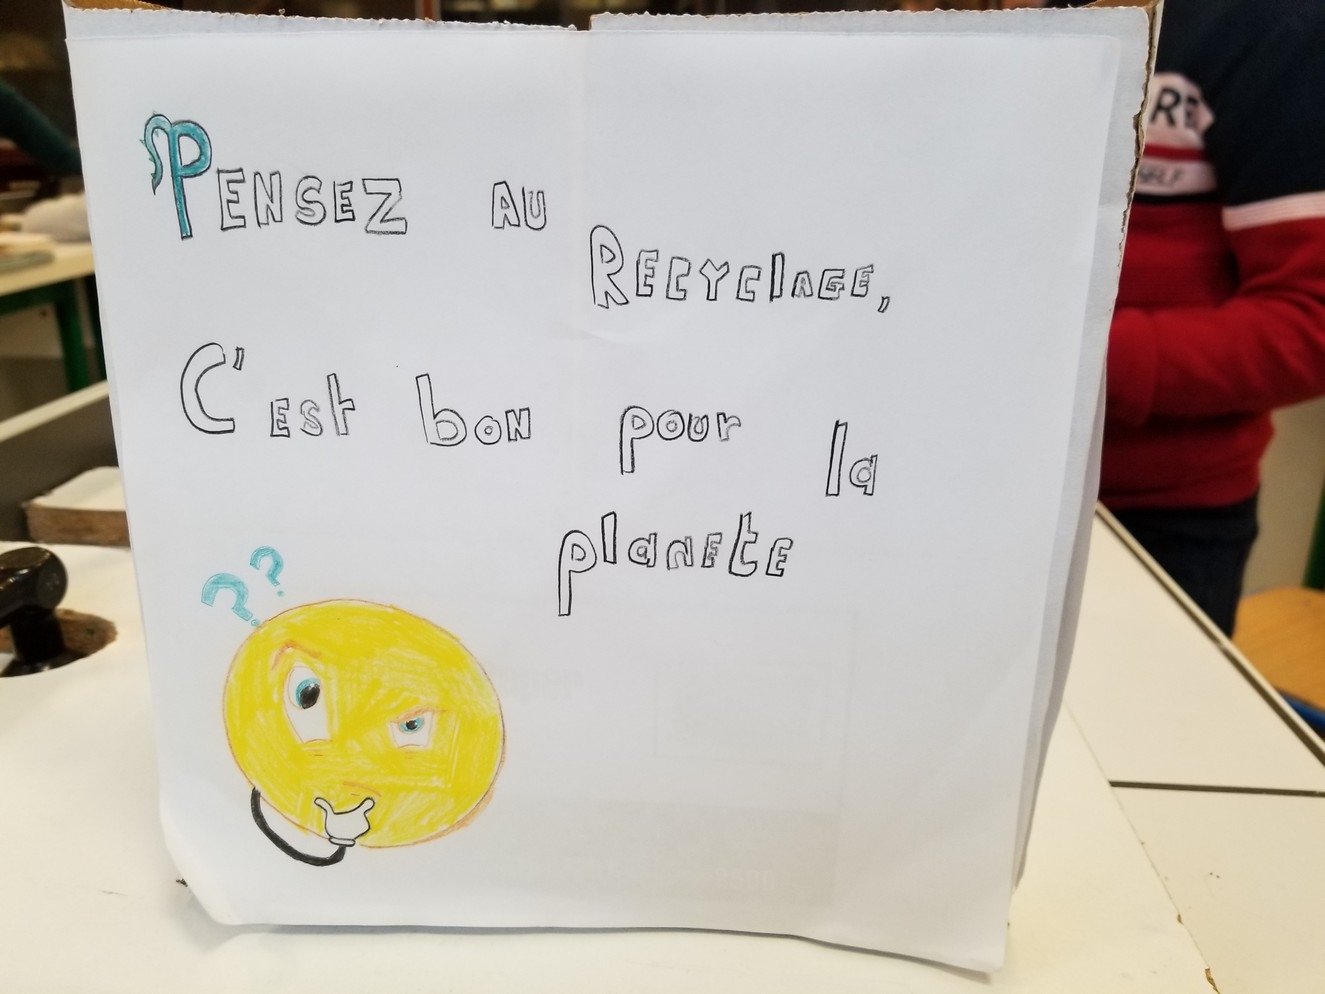 PENSEZ AU
RECYClAGE,
C'EST bON pour la
planETE
??